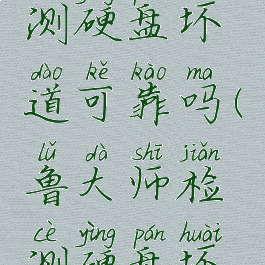 测硬盘坏
dào kě kào ma
道可靠吗(
lǔ dà shī jiǎn
鲁大师检
cè yìng pán huài
测硬盘坏